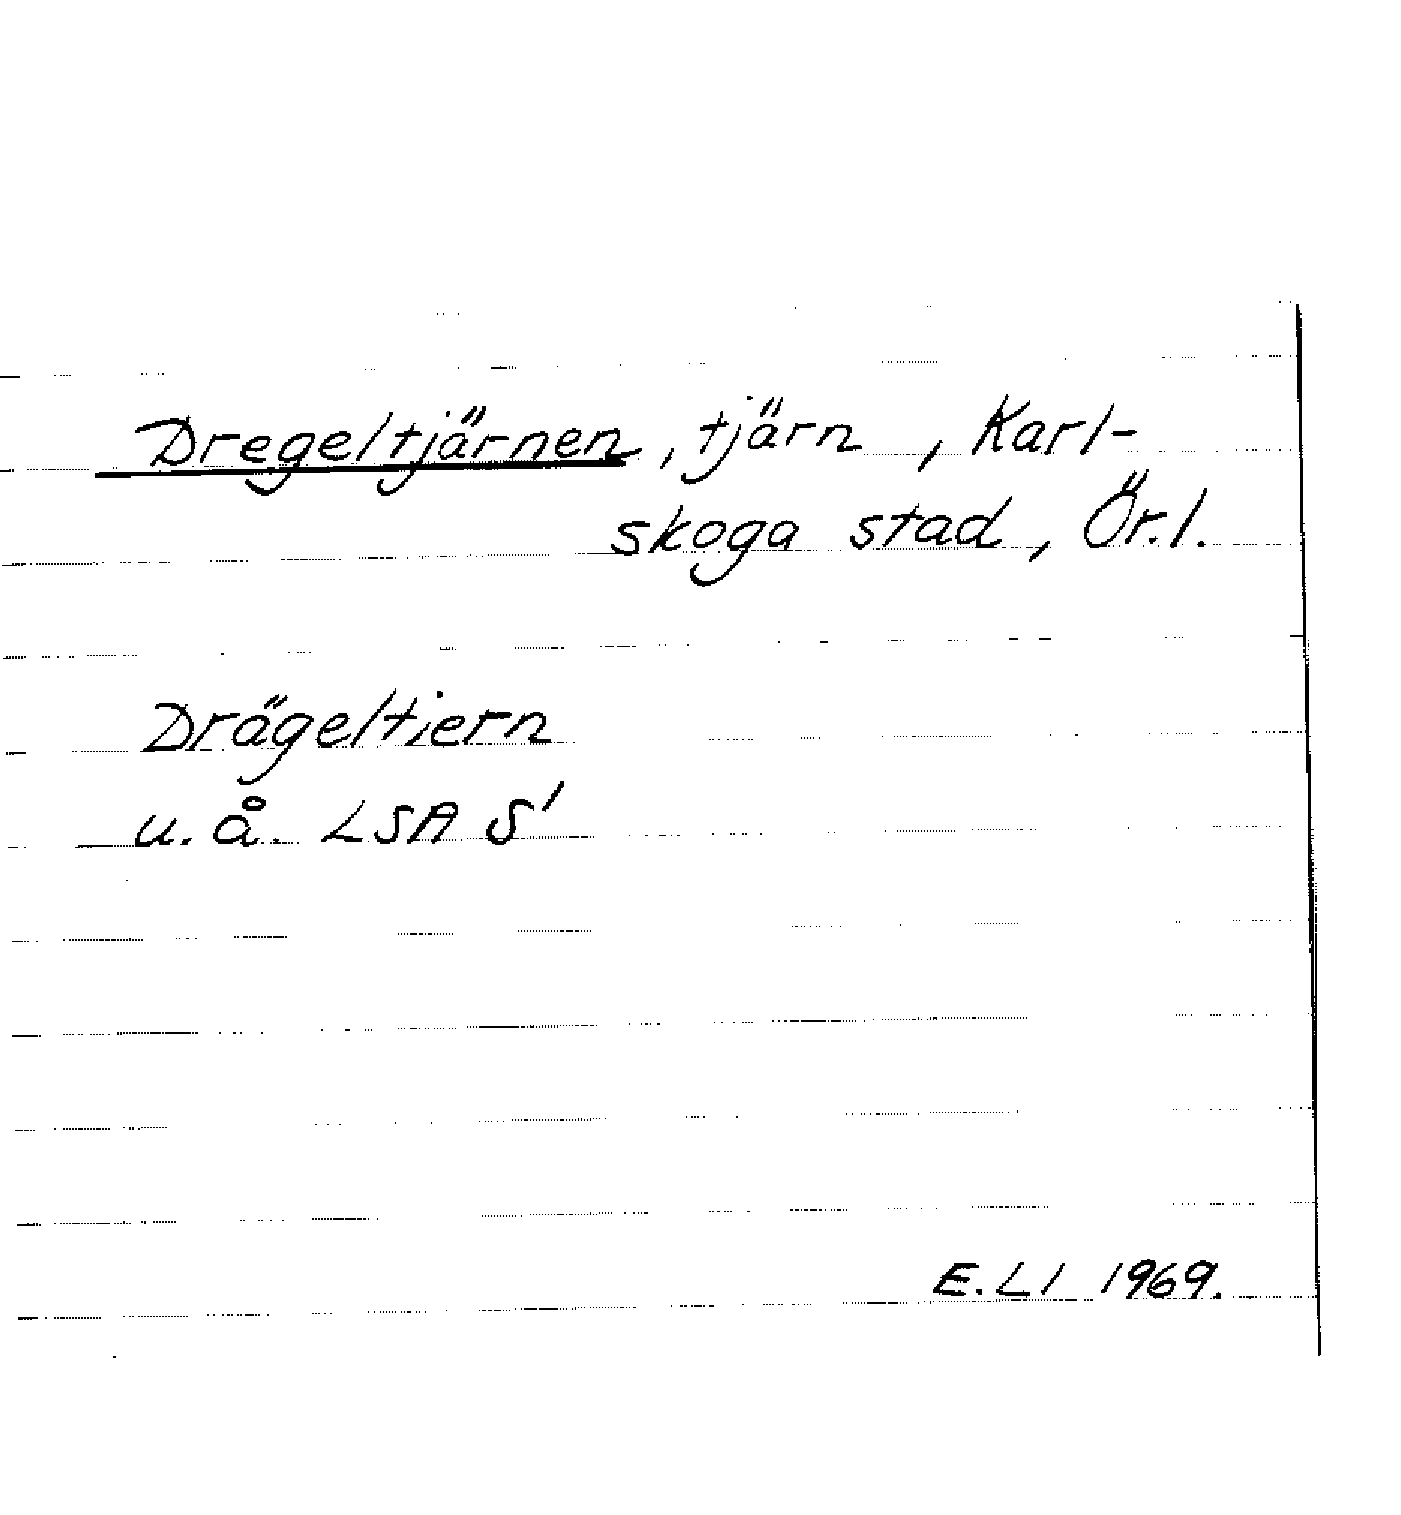 Dregeltjärnen, tjärn, Karl-
skoga stad, Ör.l.
Drägeltiern
u. å. LSA S'
E.Ll 1969.